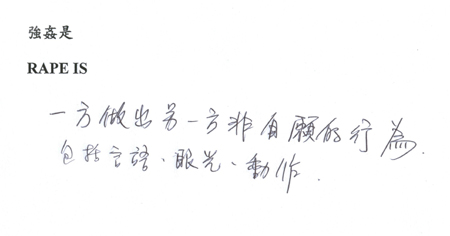 強姦是
RAPE IS
一方做出另一方非自願的行為.
包括言語、眼光、動作.